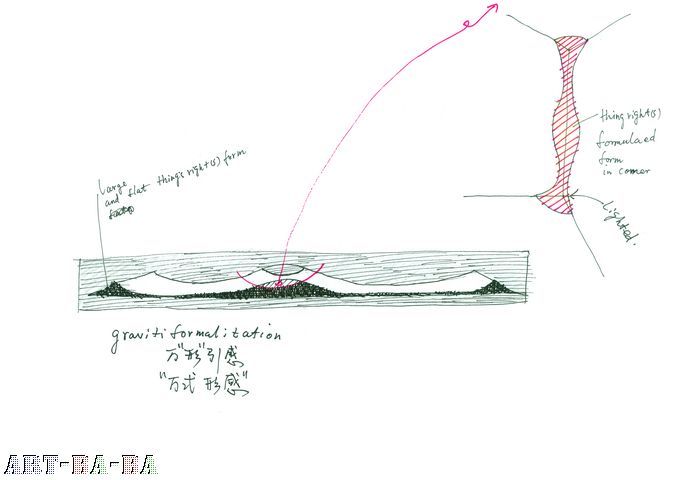 Large
and flat thing's right(s) form
thing right(s)
formulaed
form
in corner
lighted.
gravitiformalization
万"形"引感
"万式形感"
ART-BA-BA